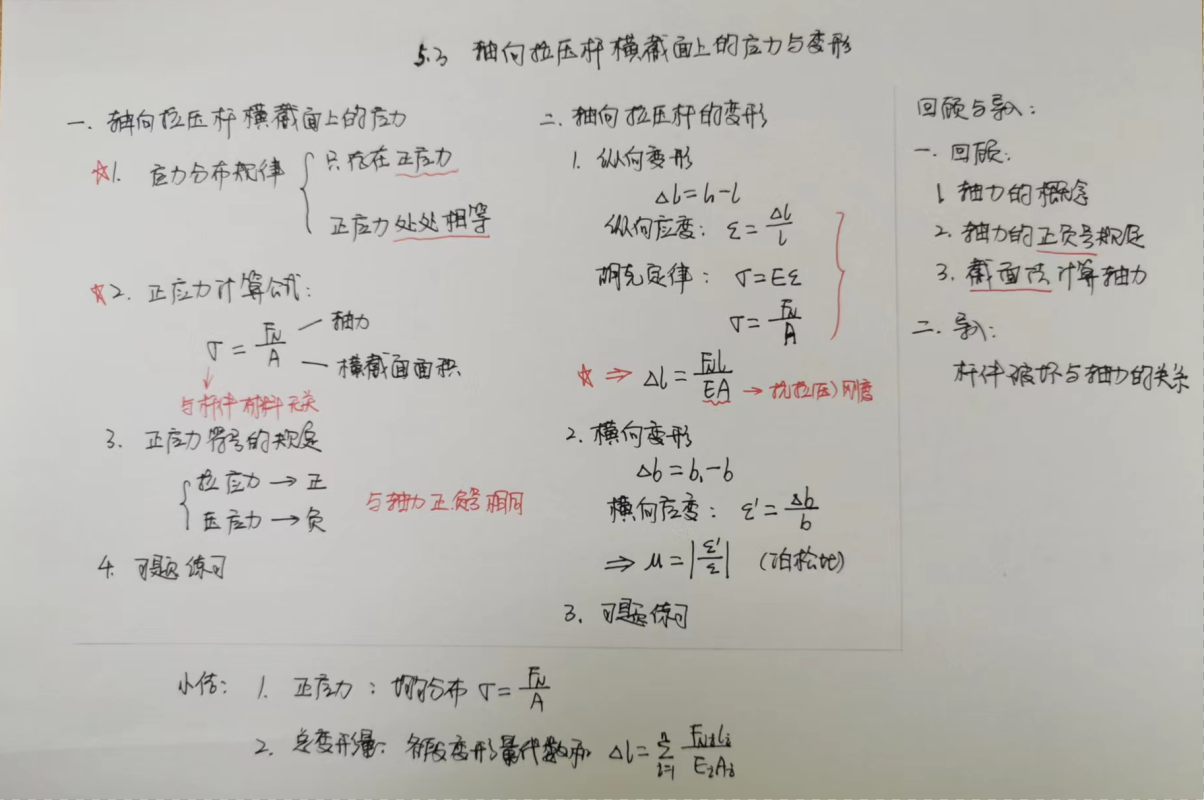 5.3 轴向拉压杆横截面上的应力与变形
一. 轴向拉压杆横截面上的应力
☆1. 应力分布规律
只存在正应力
正应力处处相等
☆2. 正应力计算公式:
σ = F_N/A
轴力
横截面面积
与杆件材料无关
3. 正应力符号的规定
拉应力 → 正
压应力 → 负
与轴力正负号相同
4. 习题练习
二. 轴向拉压杆的变形
1. 纵向变形
Δl = l₁ - l
纵向应变: ε = Δl/l
胡克定律: σ = Eε
σ = F_N/A
☆ ⇒ Δl = F_N l/EA → 抗拉(压)刚度
2. 横向变形
Δb = b₁ - b
横向应变: ε' = Δb/b
⇒ μ = |ε'/ε| (泊松比)
3. 习题练习
回顾与导入:
一. 回顾:
1. 轴力的概念
2. 轴力的正负号规定
3. 截面法计算轴力
二. 导入:
杆件破坏与轴力的关系
小结: 1. 正应力: 均匀分布 σ = F_N/A
2. 总变形量: 各段变形量代数和 Δl = Σ_{i=1}^{n} F_{Ni} l_i/E_i A_i